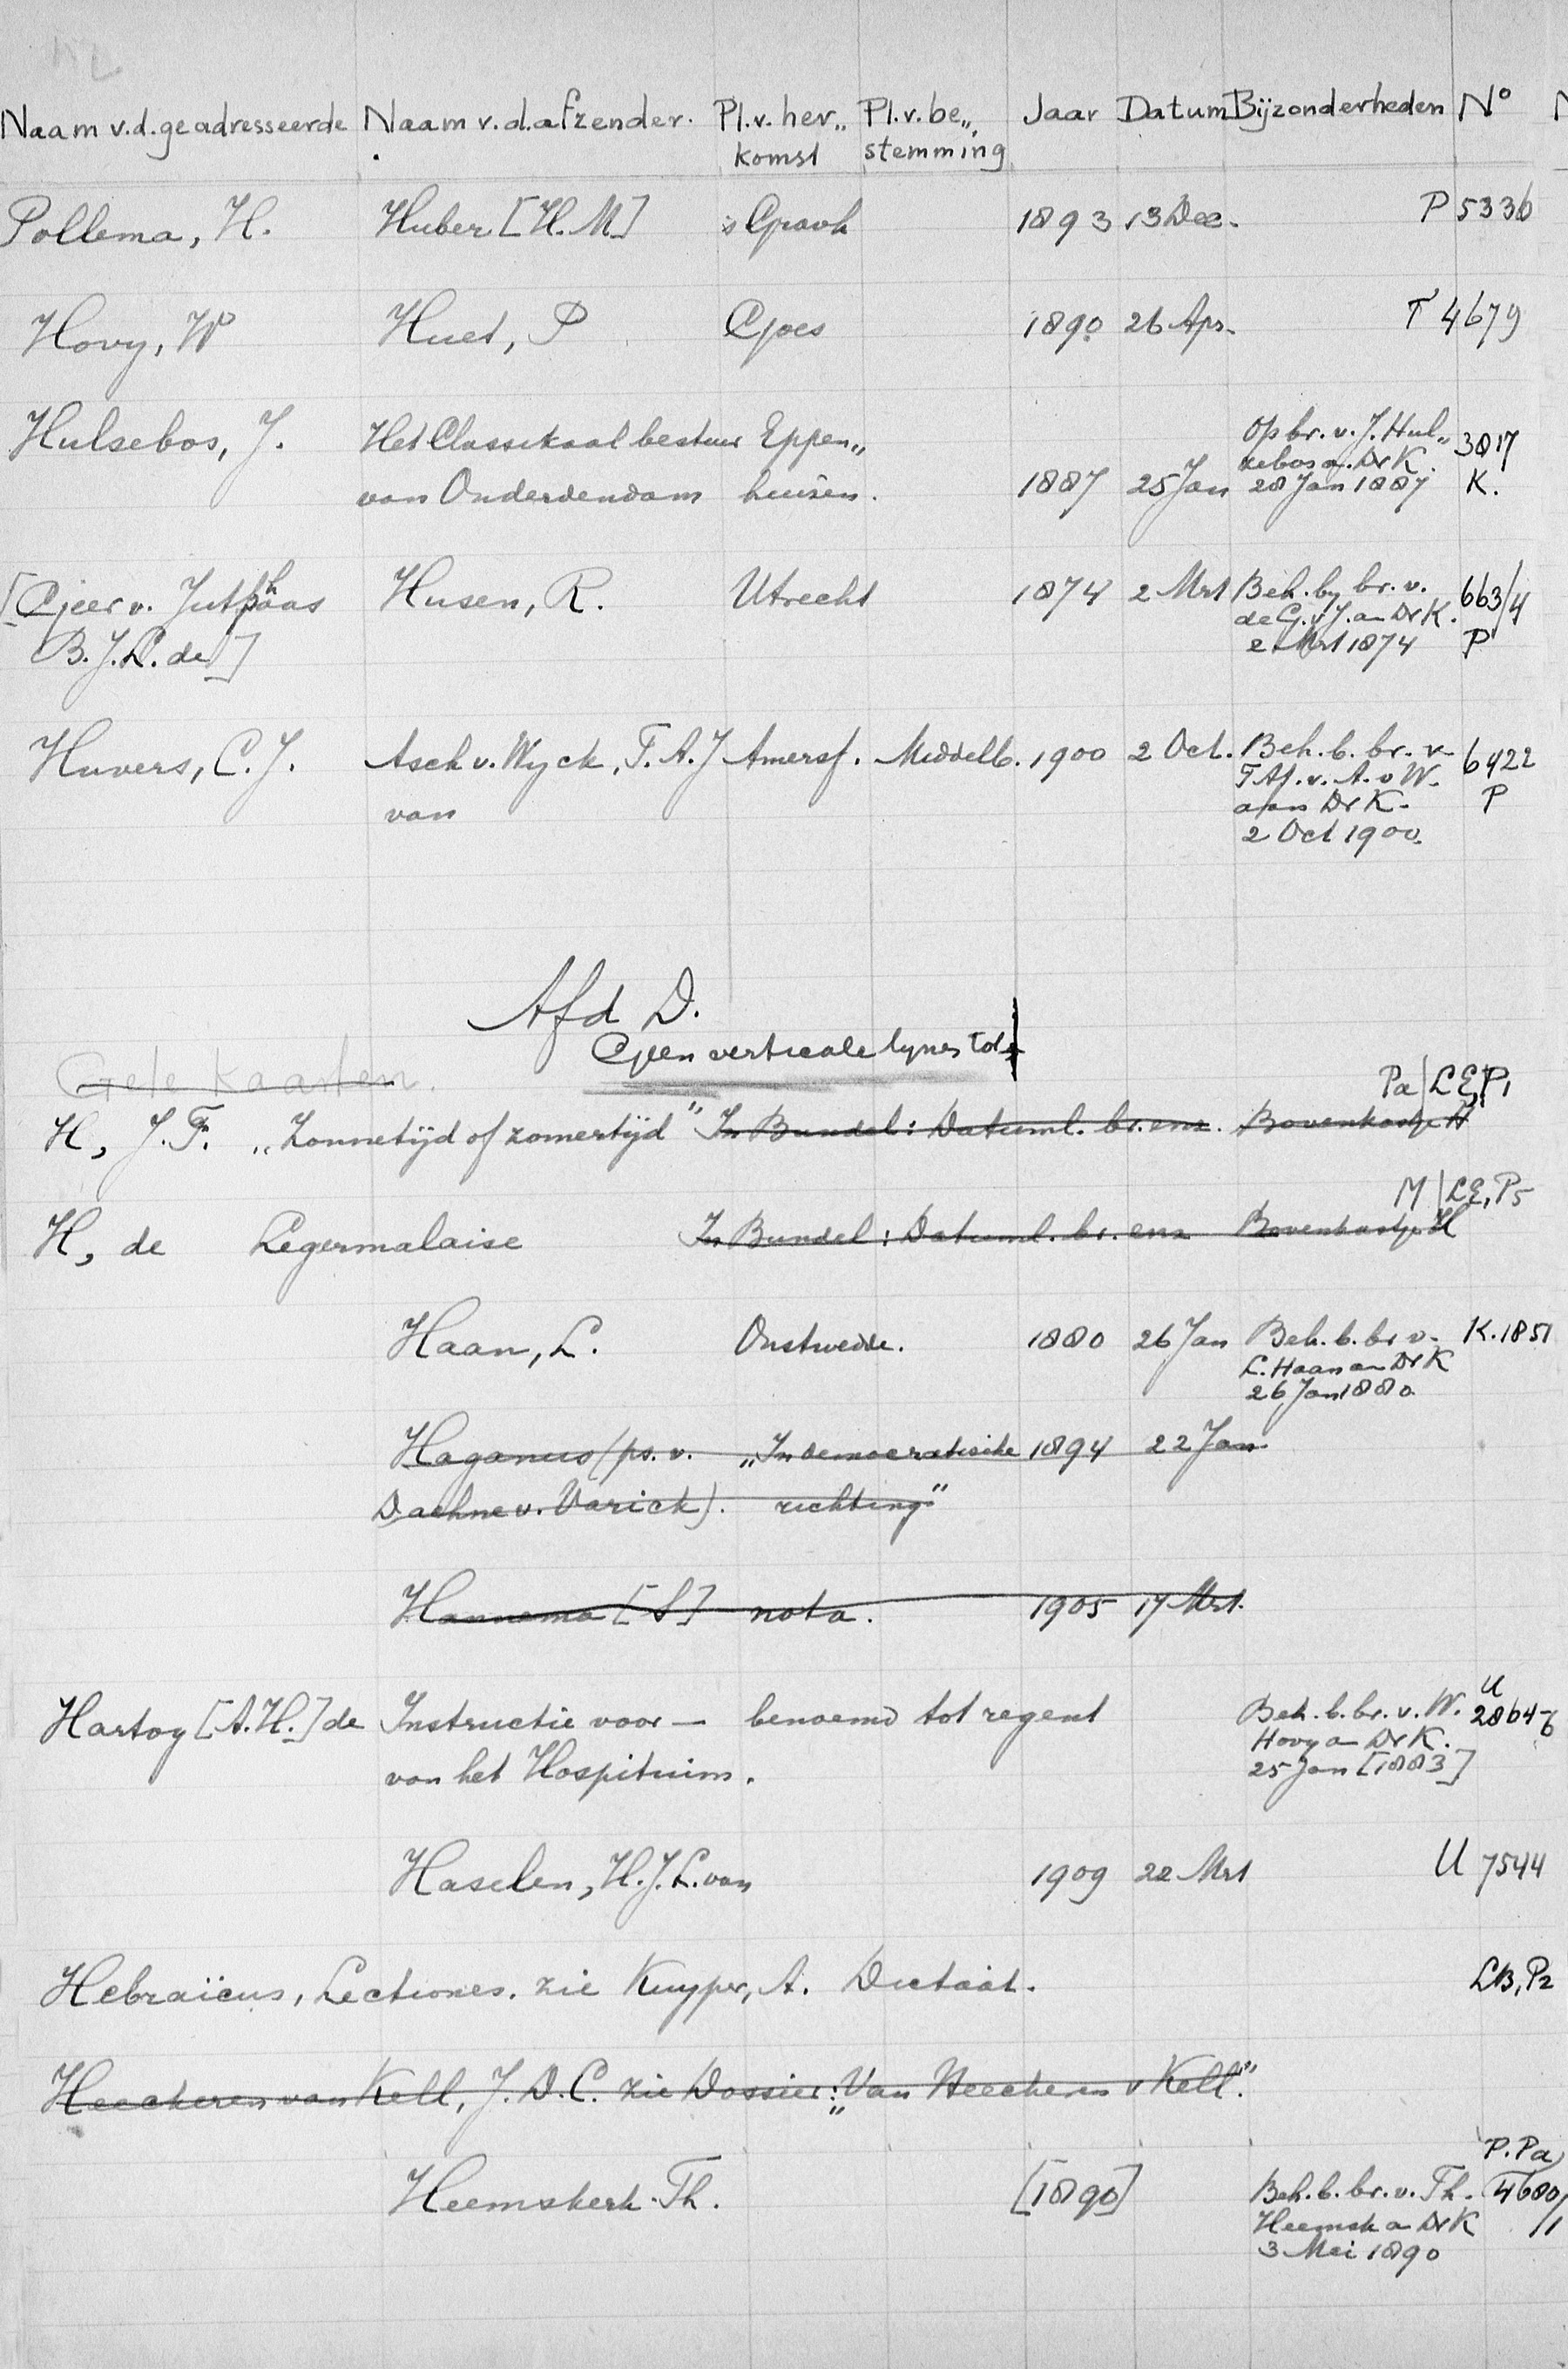 Naam v.d. geadresseerde Naam v.d. afzender. Pl. v. her„ Pl. v. be„ Jaar Datum Bijzonderheden No
komst stemming
Pollema, H. Huber [H. M] s Gravh 1893 13 Dec. P 5336
Hovy, W Huet, P Goes 1890 26 Apr. T 4679
Hulsebos, J. Het Classikaal bestuur Eppen„ Op br. v. J. Hul„ 3817
van Onderdendam huisen. 1887 25 Jan zebos a. Dr K. K.
28 Jan 1887
[Geer v. Jutphaas Husen, R. Utrecht 1874 2 Mrt Beh. by br. v. 663/4
B. J. L. de] de G. v J. an Dr K. P
2 Mrt 1874
Huvers, C. J. Asch v. Wyck, T. A. J Amersf. Middelb. 1900 2 Oct. Beh. b. br. v. 6422
van T. A J. v. A. v W. P
aan Dr K.
2 Oct 1900.
Afd D.
Geen verticale lynen tot
Gele kaarten.
Pa | LE, P1
H, J. F. „Zonnetijd of zomertijd" In Bundel: Datuml. br. enz. Bovenkastje H
M | LE, P5
H, de Legermalaise In Bundel: Datuml. br. enz Bovenkastje H
Haan, L. Onstwedde. 1880 26 Jan Beh. b. br v. K. 1851
L. Haan an Dr K
26 Jan 1880
Haganus (ps. v. „In democratische 1894 22 Jan
Daehne v. Varick). richting"
Hannema [S] nota. 1905 17 Mrt.
Hartog [A. H.] de Instructie voor — benoemd tot regent Beh. b. br. v. W. U 2864-6
van het Hospitium. Hovy an Dr K.
25 Jan [1883]
Haselen, H. J. L. van 1909 22 Mrt U 7544
Hebraïcus, Lectiones. zie Kuyper, A. Dictaat. LB, P2
Heeckeren van Kell, J. D. C. zie Dossier: „Van Heeckeren v Kell."
P. Pa
Heemskerk Th. [1890] Beh. b. br. v. Th. 4680/1
Heemsk a Dr K
3 Mei 1890